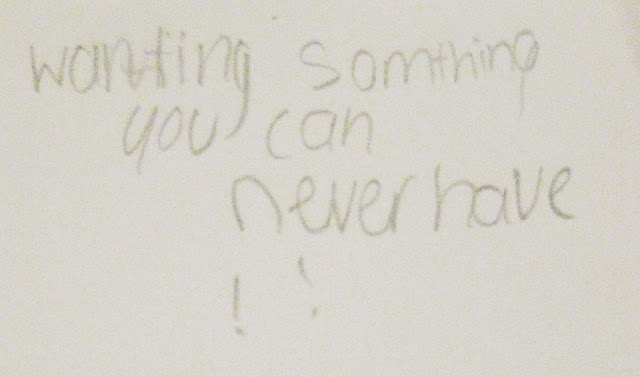 wanting somthing
you can
never have
! !